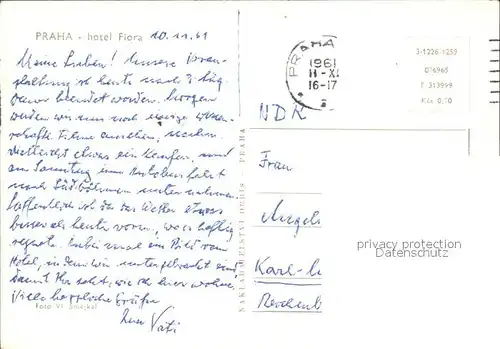 PRAHA - hotel Flora 10.11.61
Meine Lieben! Unsere Veran-
staltung ist heute nach 3 täg.
Dauer beendet worden. Morgen
werden wir uns noch einige wissen-
schaftl. Filme ansehen,
vielleicht etwas einkaufen, und
am Sonntag eine Autobusfahrt
nach Südböhmen unternehmen.
Hoffentlich ist da das Wetter etwas
besser als heute vorm., wo es heftig
regnete. Anbei mal ein Bild vom
Hotel, in dem wir untergebracht sind
damit Ihr seht, wie ich hier wohne.
Viele herzliche Grüße
Euer Vati
Foto Vl. Smejkal
NAKLADATELSTVÍ ORBIS PRAHA
PRAHA
1961
11-XI
16-17
3-1226-1259
016965
T 313999
Kčs 0,10
NDK
Frau
Karl-
privacy protection
Datenschutz